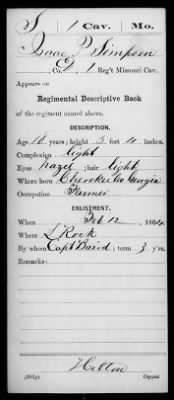 S 1 Cav. Mo.
Isaac P. Simpson
Co. D, 1 Reg't Missouri Cav.
Regimental Descriptive Book
of the regiment named above.
DESCRIPTION.
Age 18 years; height 5 feet 4 inches.
Complexion light
Eyes hazel; hair light
Where born Cherokee Co Georgia
Occupation Farmer
ENLISTMENT.
When Feb 12, 1864
Where L Rock
By whom Capt Baird; term 3 y'rs.
Remarks:
Hilton
Copyist